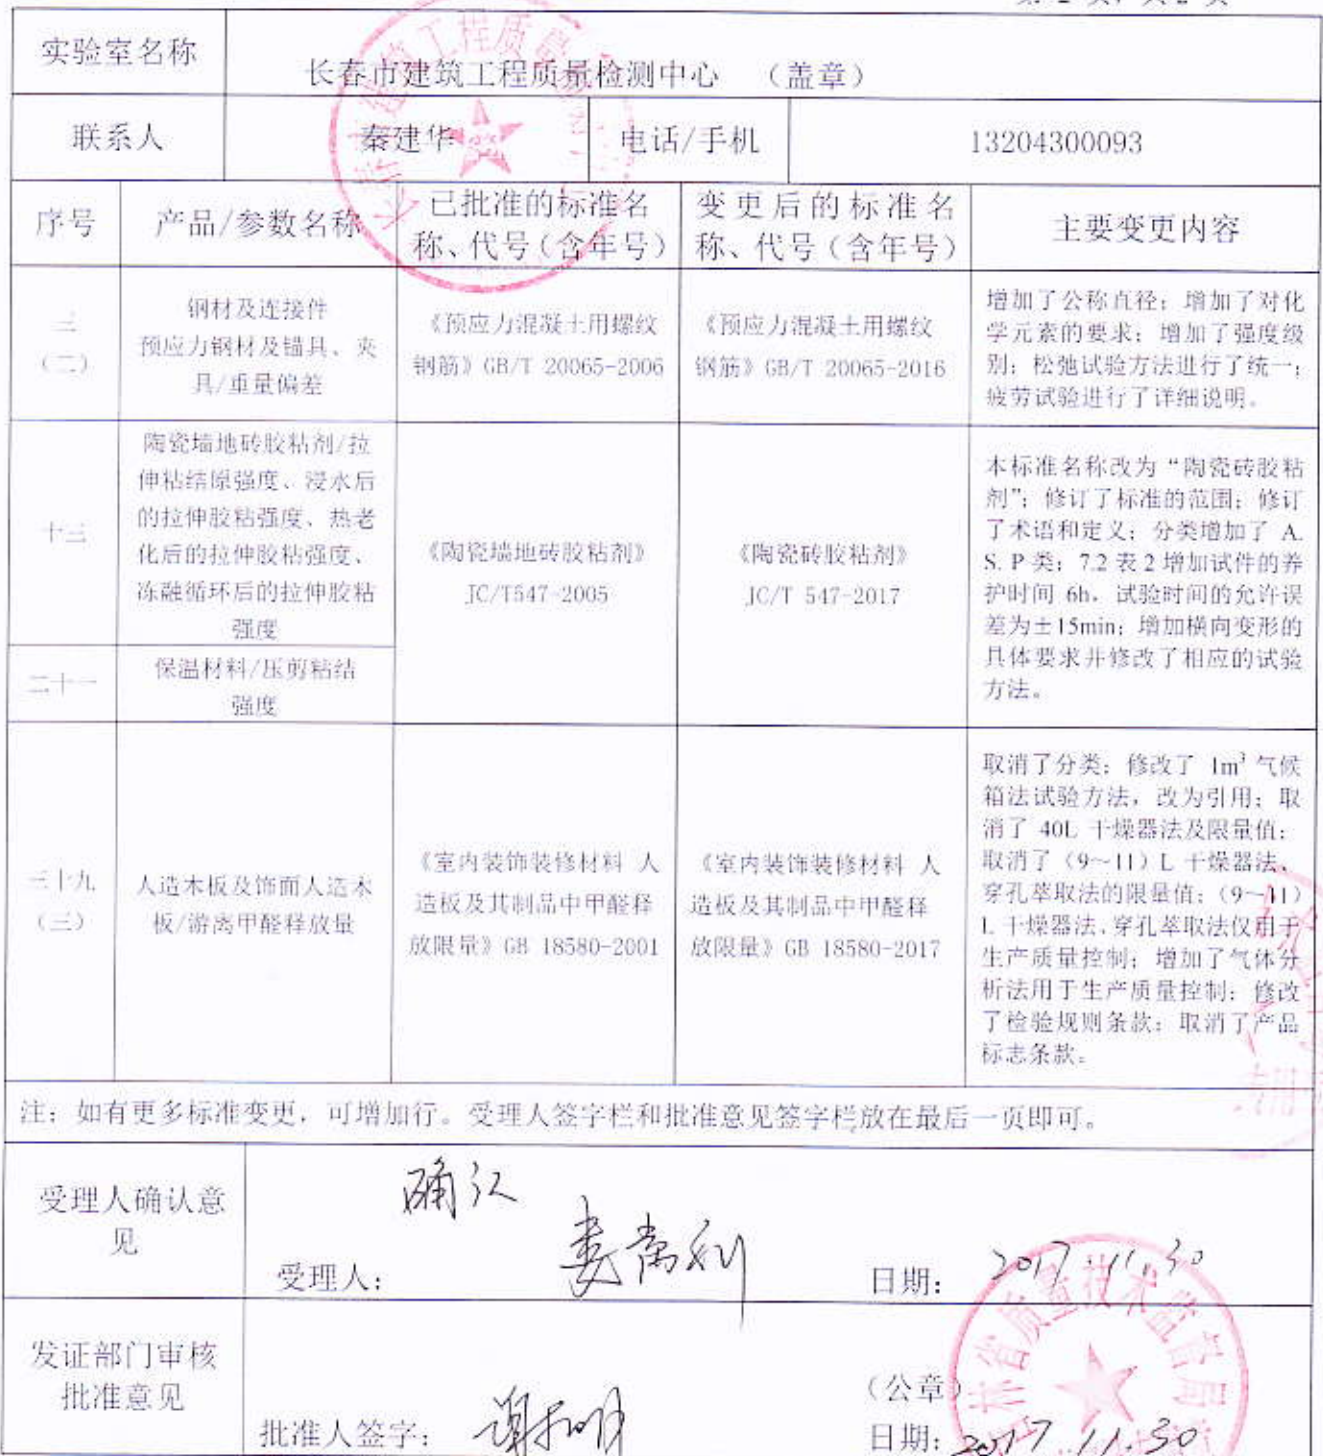 实验室名称
长春市建筑工程质量检测中心 （盖章）
联系人
秦建华
电话/手机
13204300093
序号
产品/参数名称
已批准的标准名
称、代号(含年号)
变更后的标准名
称、代号(含年号)
主要变更内容
三
(二)
钢材及连接件
预应力钢材及锚具、夹
具/重量偏差
《预应力混凝土用螺纹
钢筋》GB/T 20065-2006
《预应力混凝土用螺纹
钢筋》GB/T 20065-2016
增加了公称直径；增加了对化
学元素的要求；增加了强度级
别；松弛试验方法进行了统一；
疲劳试验进行了详细说明。
十三
陶瓷墙地砖胶粘剂/拉
伸粘结原强度、浸水后
的拉伸胶粘强度、热老
化后的拉伸胶粘强度、
冻融循环后的拉伸胶粘
强度
《陶瓷墙地砖胶粘剂》
JC/T547-2005
《陶瓷砖胶粘剂》
JC/T 547-2017
本标准名称改为“陶瓷砖胶粘
剂”；修订了标准的范围；修订
了术语和定义；分类增加了 A.
S. P 类；7.2 表 2 增加试件的养
护时间 6h，试验时间的允许误
差为±15min；增加横向变形的
具体要求并修改了相应的试验
方法。
二十一
保温材料/压剪粘结
强度
三十九
(三)
人造木板及饰面人造木
板/游离甲醛释放量
《室内装饰装修材料 人
造板及其制品中甲醛释
放限量》GB 18580-2001
《室内装饰装修材料 人
造板及其制品中甲醛释
放限量》GB 18580-2017
取消了分类；修改了 1m³ 气候
箱法试验方法，改为引用；取
消了 40L 干燥器法及限量值；
取消了（9～11）L 干燥器法、
穿孔萃取法的限量值；（9～11）
L 干燥器法、穿孔萃取法仅用于
生产质量控制；增加了气体分
析法用于生产质量控制；修改
了检验规则条款；取消了产品
标志条款。
注：如有更多标准变更，可增加行。受理人签字栏和批准意见签字栏放在最后一页即可。
受理人确认意
见
确认
受理人：
日期：
2017.11.30
发证部门审核
批准意见
（公章）
批准人签字：
日期：2017.11.30